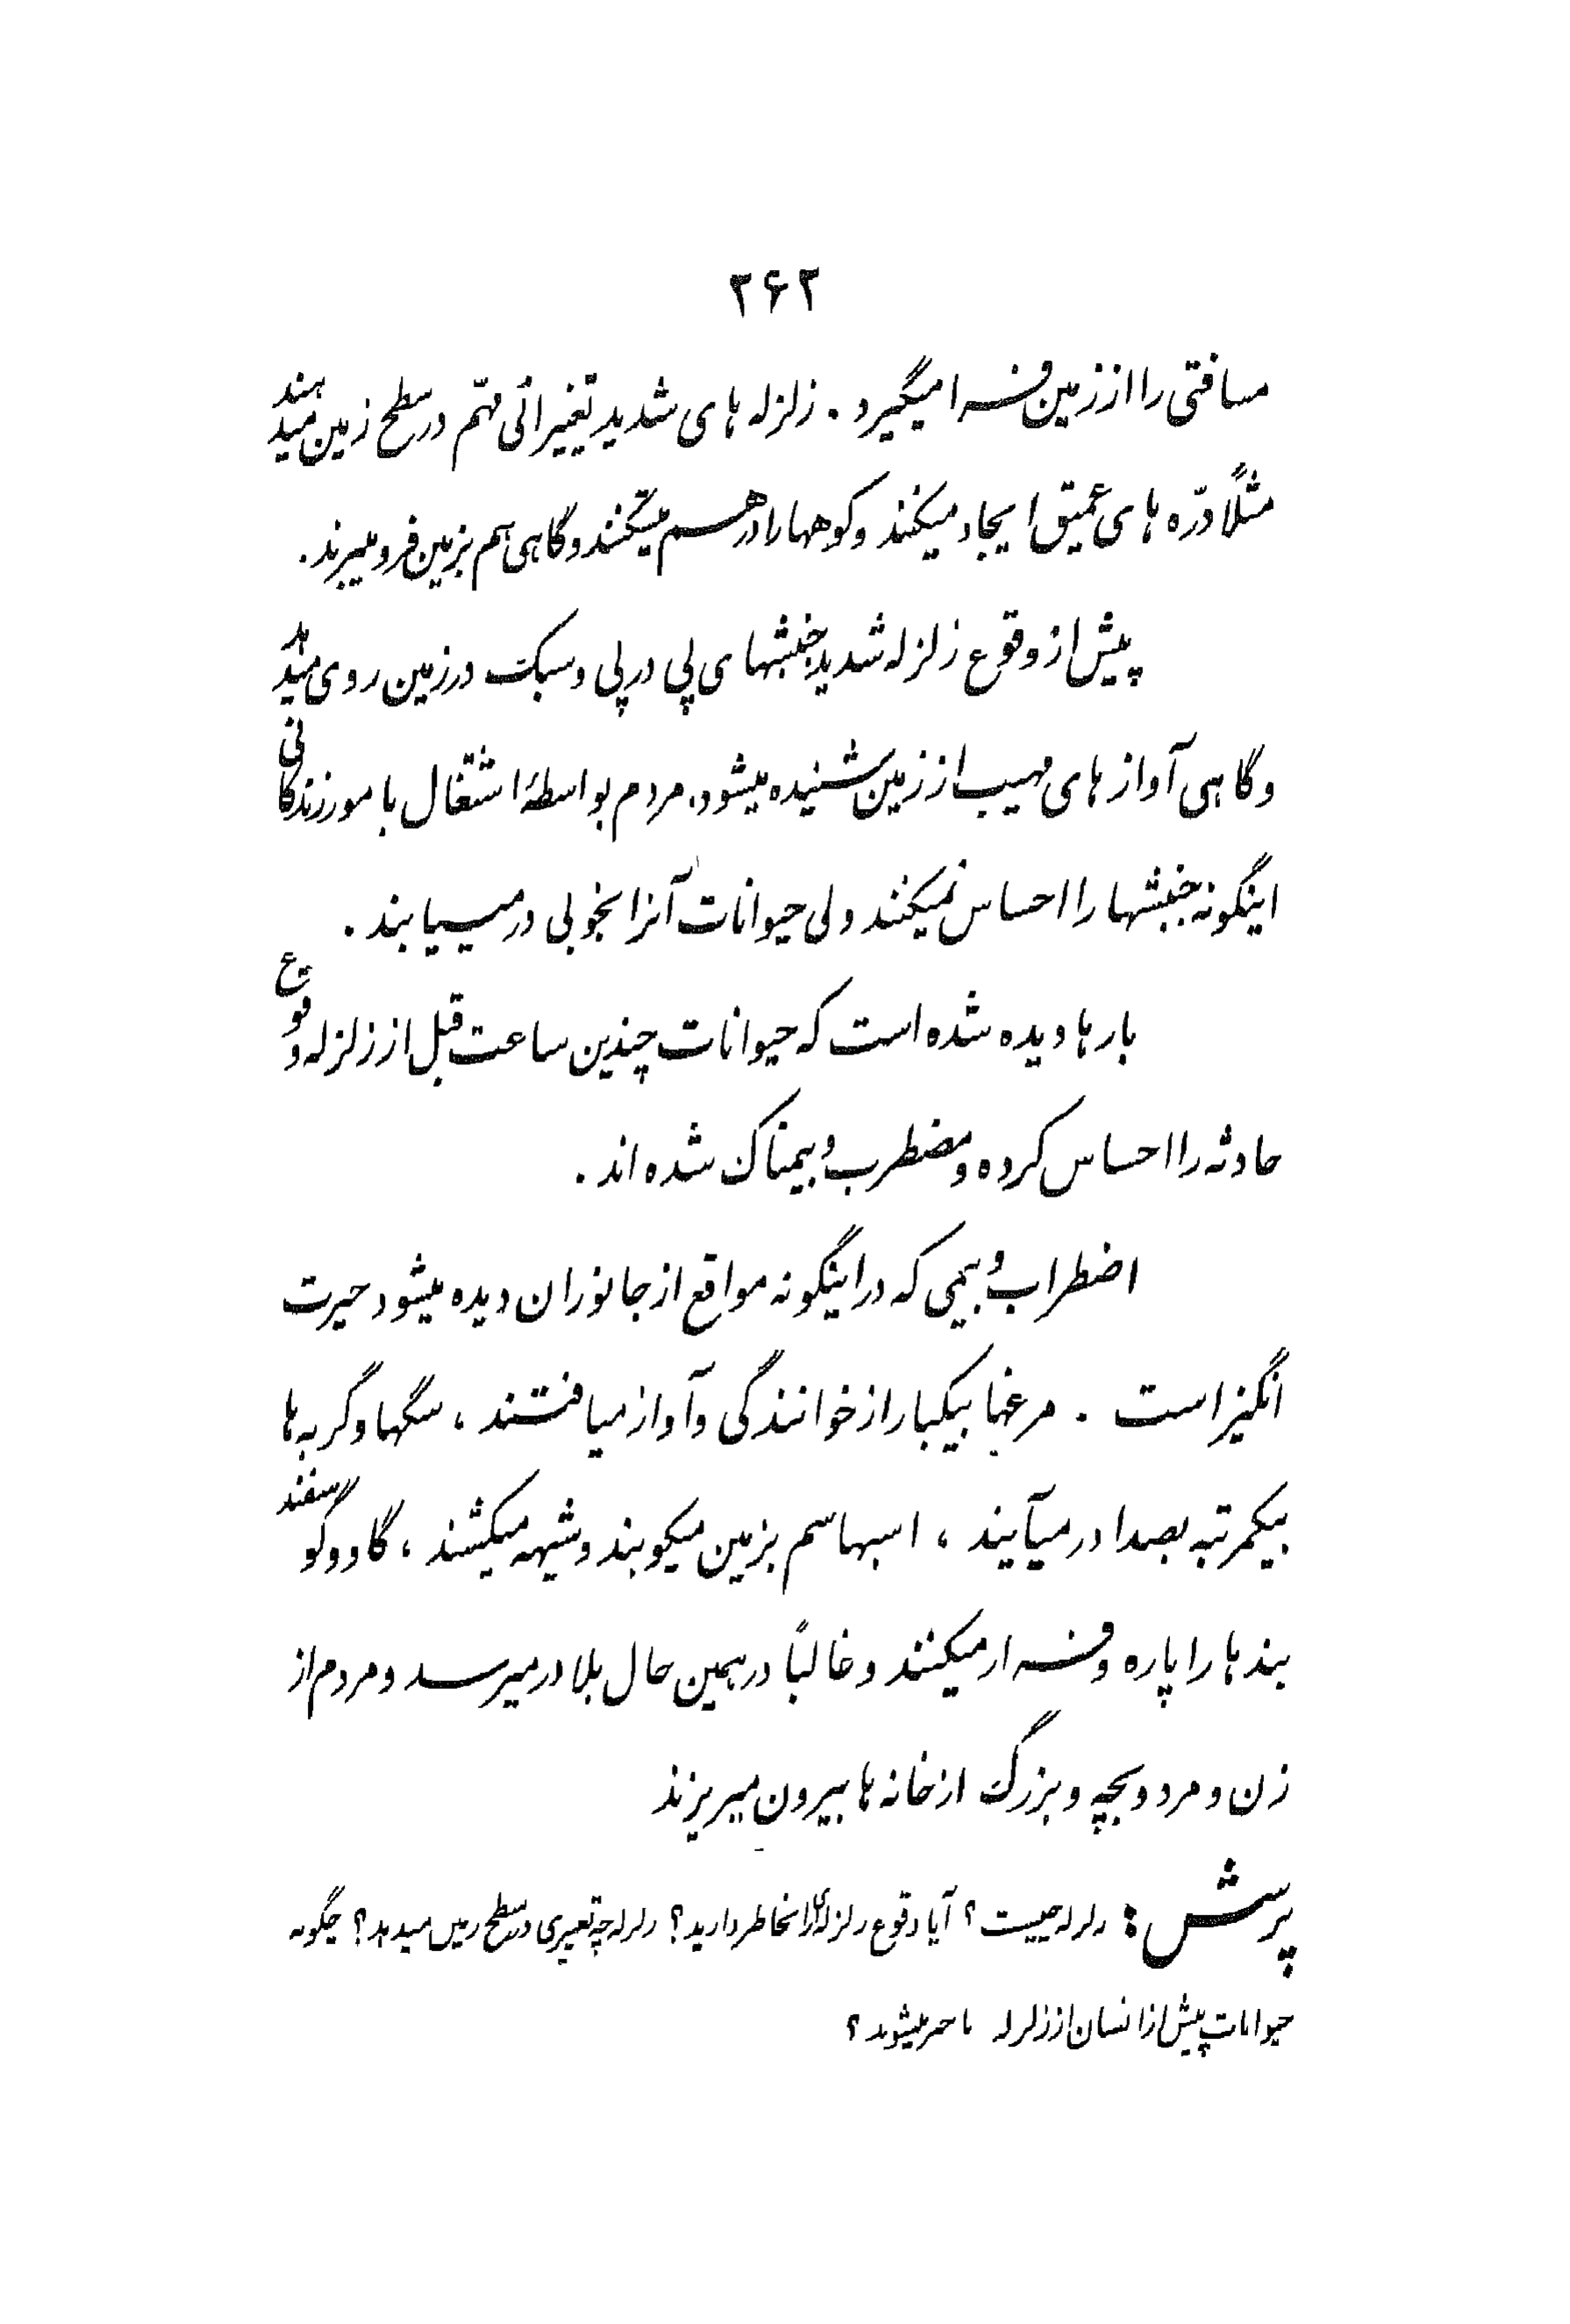 ۲۶۲
مسافتی را از زمین فرا میگیرد . زلزله های شدید تغییراتی مهّم در سطح زمین میدهند
مثلاً درّه های عمیق ایجاد میکنند و کوهها را در هم میشکنند و گاهی هم بزمین فرو میبرند .
پیش از وقوع زلزله شدید جنبشهای پی در پی و سبک در زمین روی میدهد
و گاهی آواز های مهیب از زمین شنیده میشود . مردم بواسطهٔ اشتغال بامور زندگانی
اینگونه جنبشها را احساس نمیکنند ولی حیوانات آنرا بخوبی در مییابند .
بارها دیده شده است که حیوانات چندین ساعت قبل از زلزله وقوع
حادثه را احساس کرده و مضطرب و بیمناک شده اند .
اضطراب و بیمی که در اینگونه مواقع از جانوران دیده میشود حیرت
انگیز است . مرغها بیکبار از خوانندگی و آواز میافتند ، سگها و گربه ها
بیکمرتبه بصدا در میآیند ، اسبها سم بزمین میکوبند و شیهه میکشند ، گاو و گوسفند
بندها را پاره و فرار میکنند و غالباً در همین حال بلا در میرسد و مردم از
زن و مرد و بچه و بزرگ از خانه ها بیرون میریزند
پرسش : زلزله چیست ؟ آیا وقوع زلزله‌ای را بخاطر دارید ؟ زلزله چه تغییری در سطح زمین میدهد ؟ چگونه
حیوانات پیش از انسان از زلزله باخبر میشوند ؟